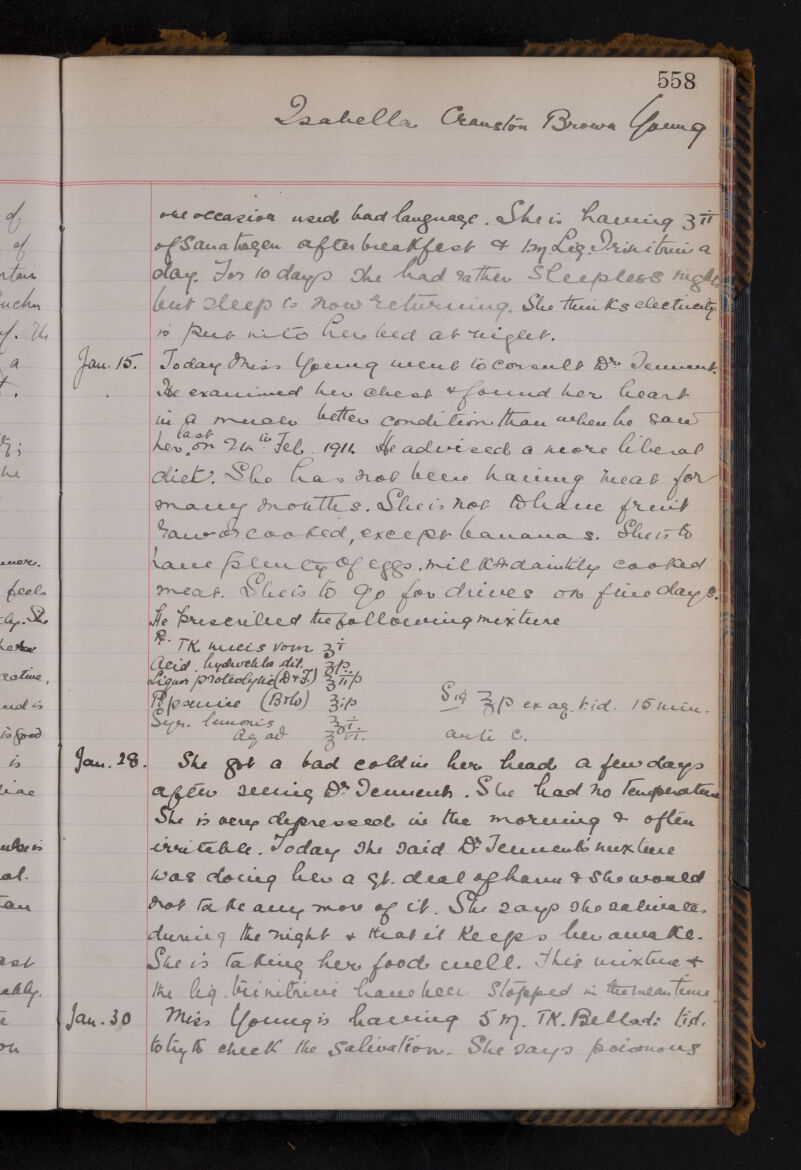 558
Isabella Cranston Brown Young
one occasion used bad language. She is having ʒii
of Sanatogen after breakfest & 1 ɱ Liq. Trinitrini a
day. For 10 days she had rather sleepless nights
but sleep is now returning. She thinks electricity
is put into her bed at night.
Jan. 15. Today Miss Young went to consult Dr Tennent.
He examined her chest & found her heart
in a much better condition than when he saw
her last on 24th Feb. 1911. He advised a more liberal
diet. She has not been having meat for
many months. She is not to have fruit
raw or cooked, except bananas. She is to
have plenty of eggs, milk & daintily cooked
meat. She is to go for drives on fine days.
He prescribed the following mixture
R. TK. nucis vom ʒi
Acid. hydrochlo dil. ʒiß
Liquor proteolytic (D & F.) ʒiiß
Pepsenice (B & Co) ʒiß
Syr. limonis ℥i
Aq ad ℥vi.
Sig ℥ß ex aq. t.i.d. 15 min.
anti c.
Jan. 28. She got a bad cold in her head a few days
after seeing Dr Tennent. She had no temperature
She is very depressed in the morning & often
irritable. Today she said Dr Tennent's mixture
was doing her a gt. deal of harm & she would
not take any more of it. She says she salivates
during the night & that it keeps her awake.
She is taking her food well. This mixture &
the liq. trinitrini have been stopped in the meantime
Jan. 30 Miss Young is having 5 ɱ. TK. Bellad: t.i.d.
to try to check the salivation. She says poisonous
of
of
a
he
feels
She
is
is good
is
al.
an